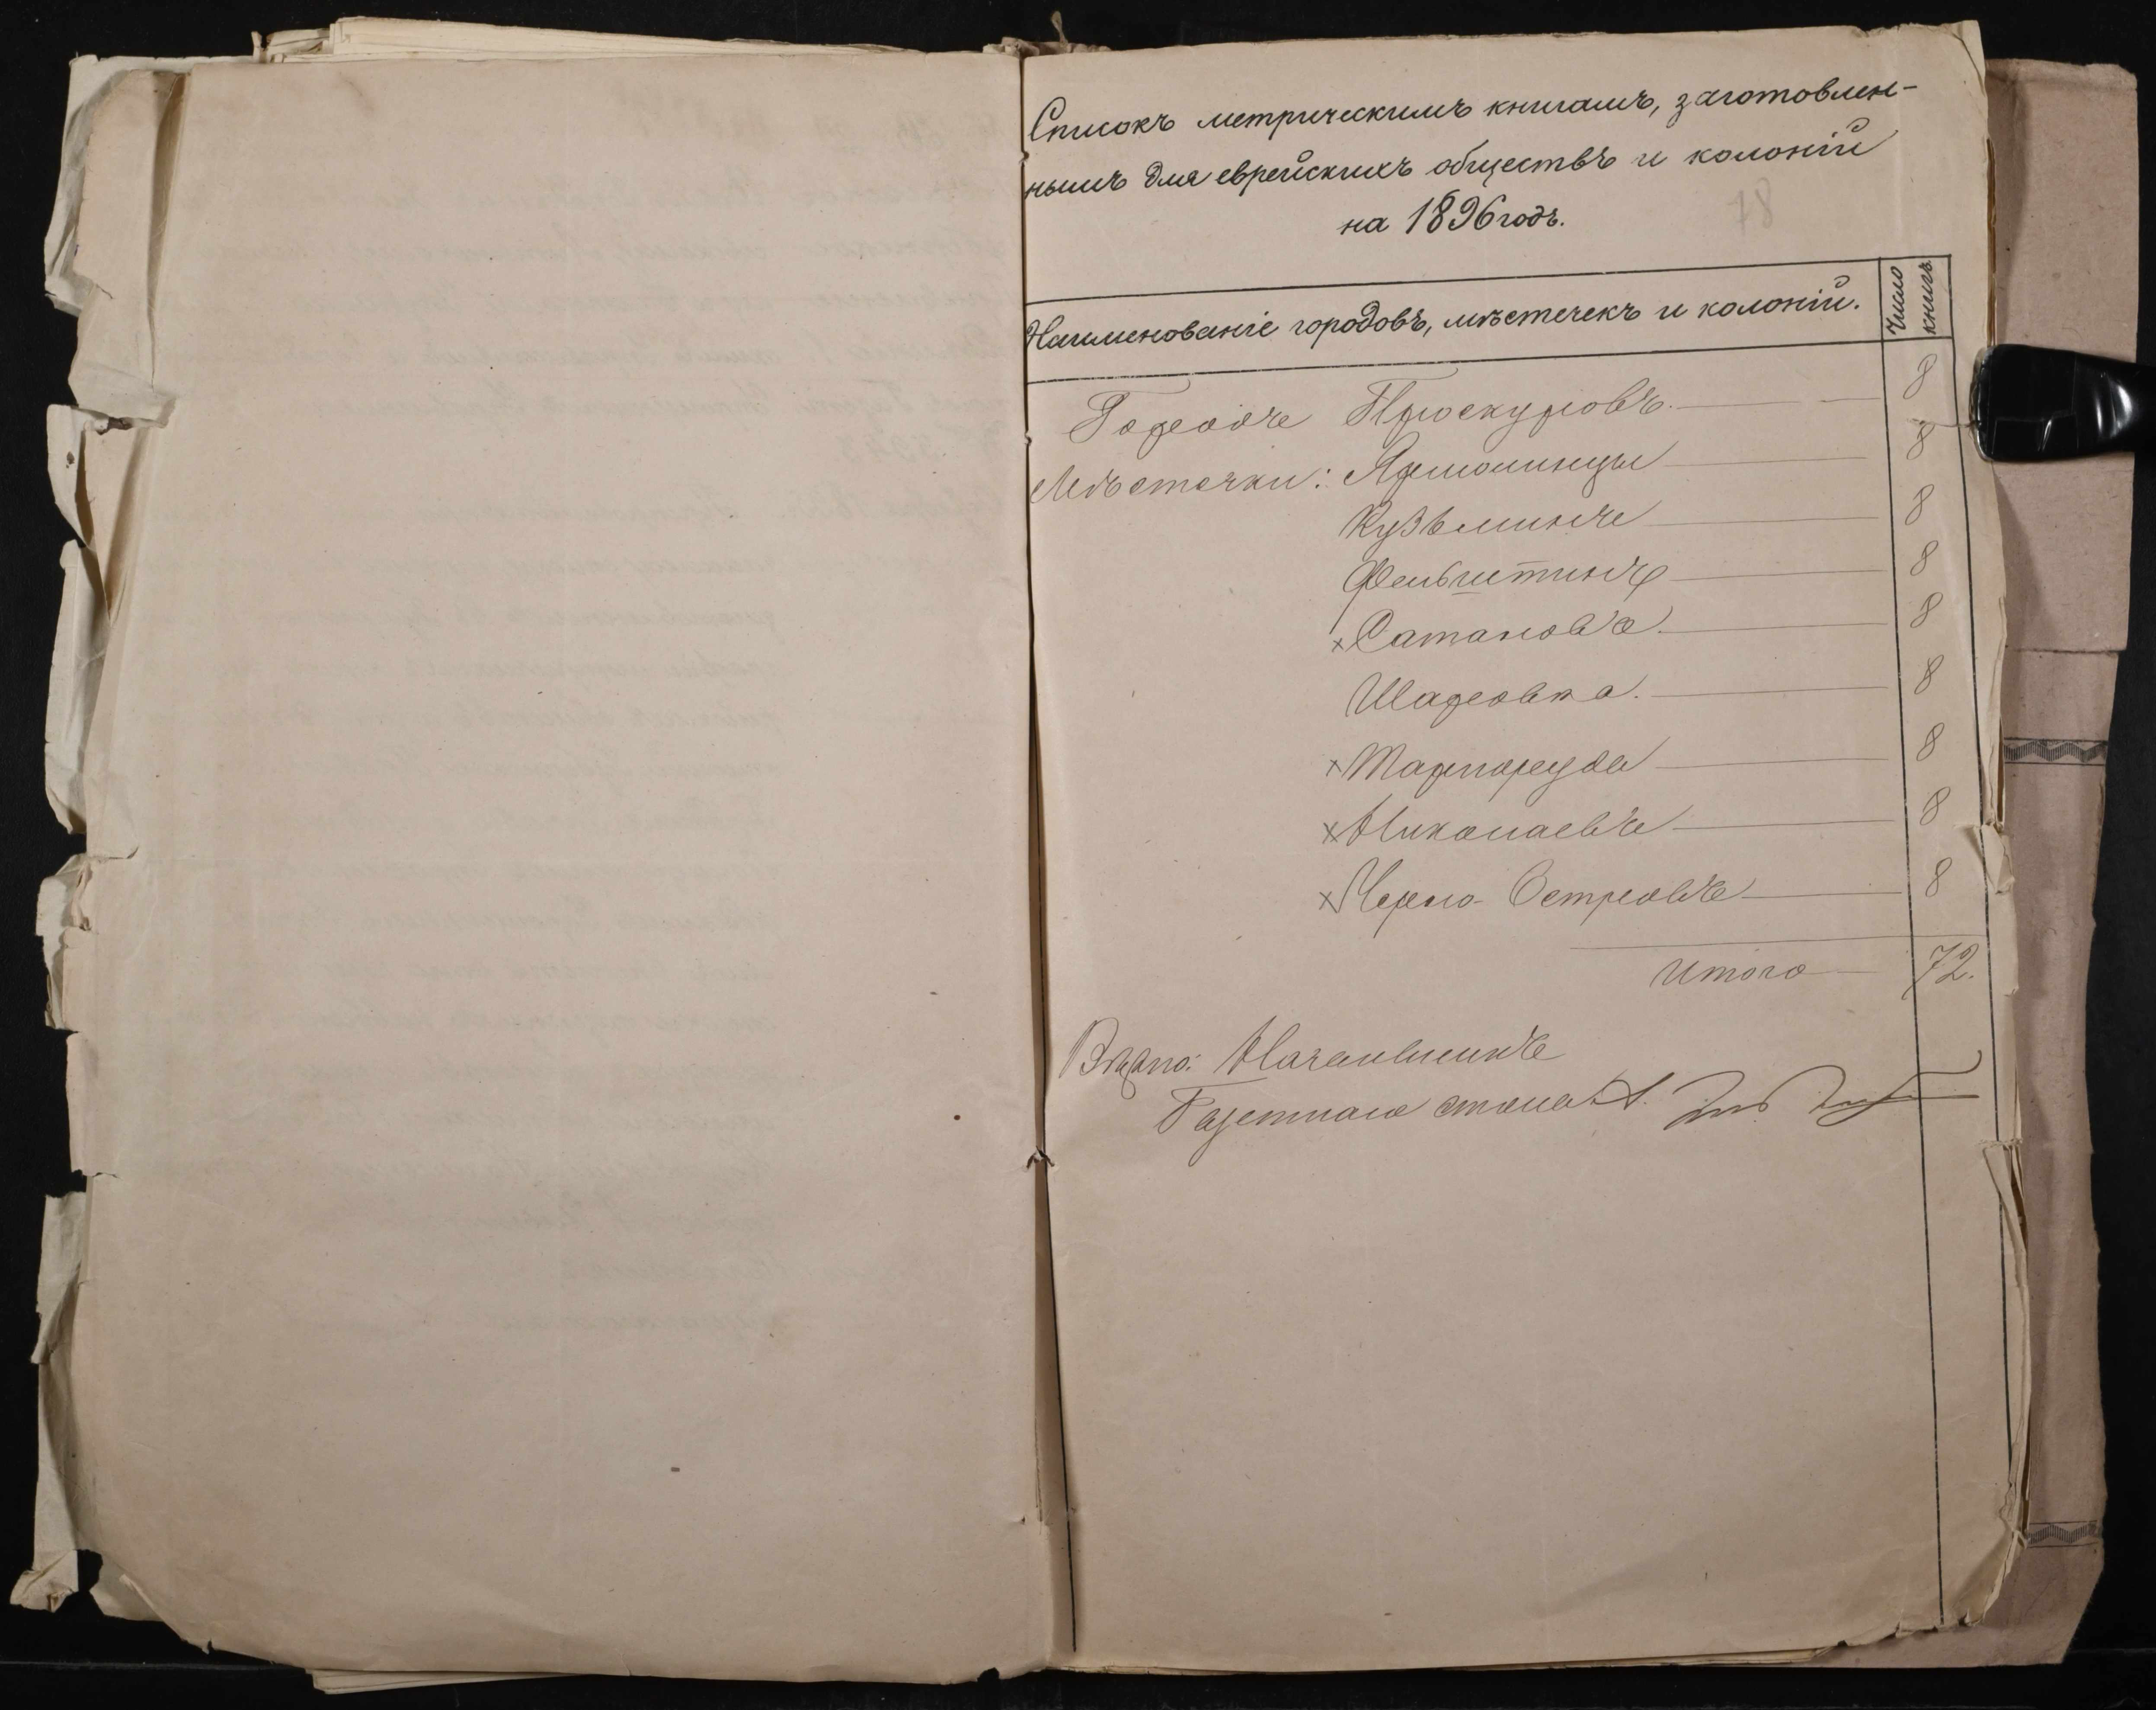 Списокъ метрическимъ книгамъ, заготовлен-
нымъ для еврейскихъ обществъ и колоній
на 1896 годъ.
78
Наименованіе городовъ, мѣстечекъ и колоній.
Число
книгъ
Городъ Проскуровъ. 8
Мѣстечки: Ярмолинцы 8
Кузьминъ 8
Фельштинъ 8
× Сатановъ. 8
Шаровка. 8
× Тарноруда 8
× Николаевъ 8
× Черно-Островъ 8
Итого 72.
Вѣрно: Начальникъ
Газетнаго стола